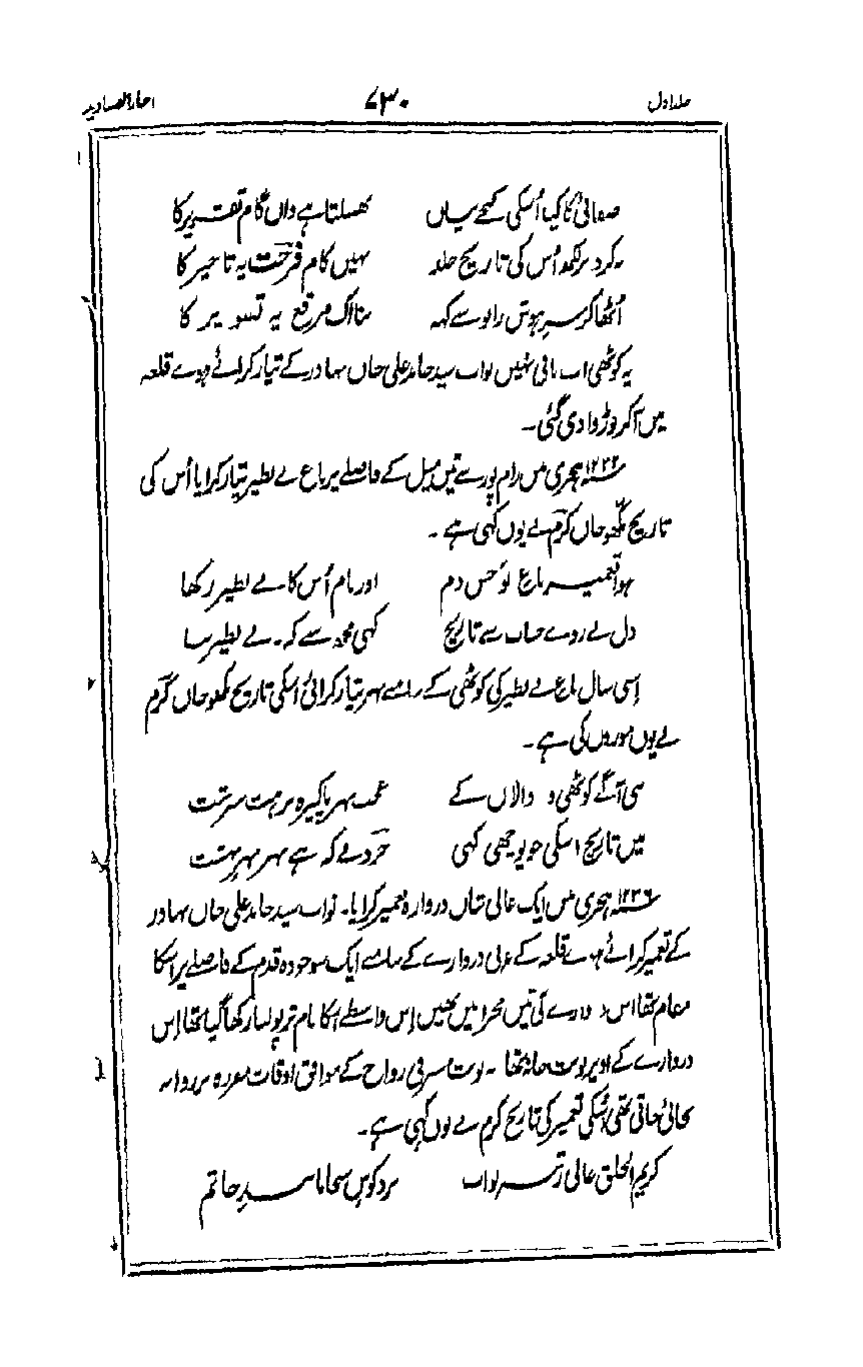 جلد اول ۷۳۰ اخبار الصنادید
صفائی کا کیا اُسکی کیجے بیاں پھسلتا ہے واں گام تقریر کا
لکھ اُس کی تاریخ جلد نہیں کام فرحت یہ تاخیر کا
اُٹھا کر سرِ ہوش زانو سے کہہ بنا اک مرقع یہ تصویر کا
یہ کوٹھی اب باقی نہیں نواب سید حامد علی خاں بہادر کے تیار کرائے ہوے قلعہ
میں آکر توڑوا دی گئی۔
ہجری میں رام پور سے تین میل کے فاصلے پر باغ بے نظیر تیار کرایا اُس کی
تاریخ خاں کرم نے یوں کہی ہے ۔
ہوا تعمیر باغ نو جس دم اور نام اُس کا بے نظیر رکھا
دل نے روے حساب سے تاریخ کہی مجھ سے کہ ۔ بے نظیر بنا
اِسی سال باغ بے نظیر کی کوٹھی کے سامنے نہر تیار کرائی اسکی تاریخ خاں کرم
نے یوں موزوں کی ہے ۔
بنی آگے کوٹھی و دالاں کے عجب نہر پاکیزہ نزہت سرشت
میں تاریخ اسکی جو پوچھی کہی خرد نے کہ ہے نہر نہرِ بہشت
۱۲۳۶ ہجری میں ایک عالی شان دروازہ تعمیر کرایا۔ نواب سید حامد علی خاں بہادر
کے تعمیر کرائے ہوے قلعہ کے غربی دروازے کے سامنے ایک سو چودہ قدم کے فاصلے پر اسکا
مقام تھا اس دروازے کی تین محرابیں تھیں اِس واسطے اسکا نام ترپولیا رکھا گیا تھا اِس
دروازے کے اوپر نوبت خانہ تھا ۔ نوبت مشرقی رواج کے موافق اوقات مقررہ پر روزانہ
بجائی جاتی تھی اُسکی تعمیر کی تاریخ کرم نے یوں کہی ہے۔
کریم الخلق عالی رتبہ نواب بزد کوس سخا مانند حاتم